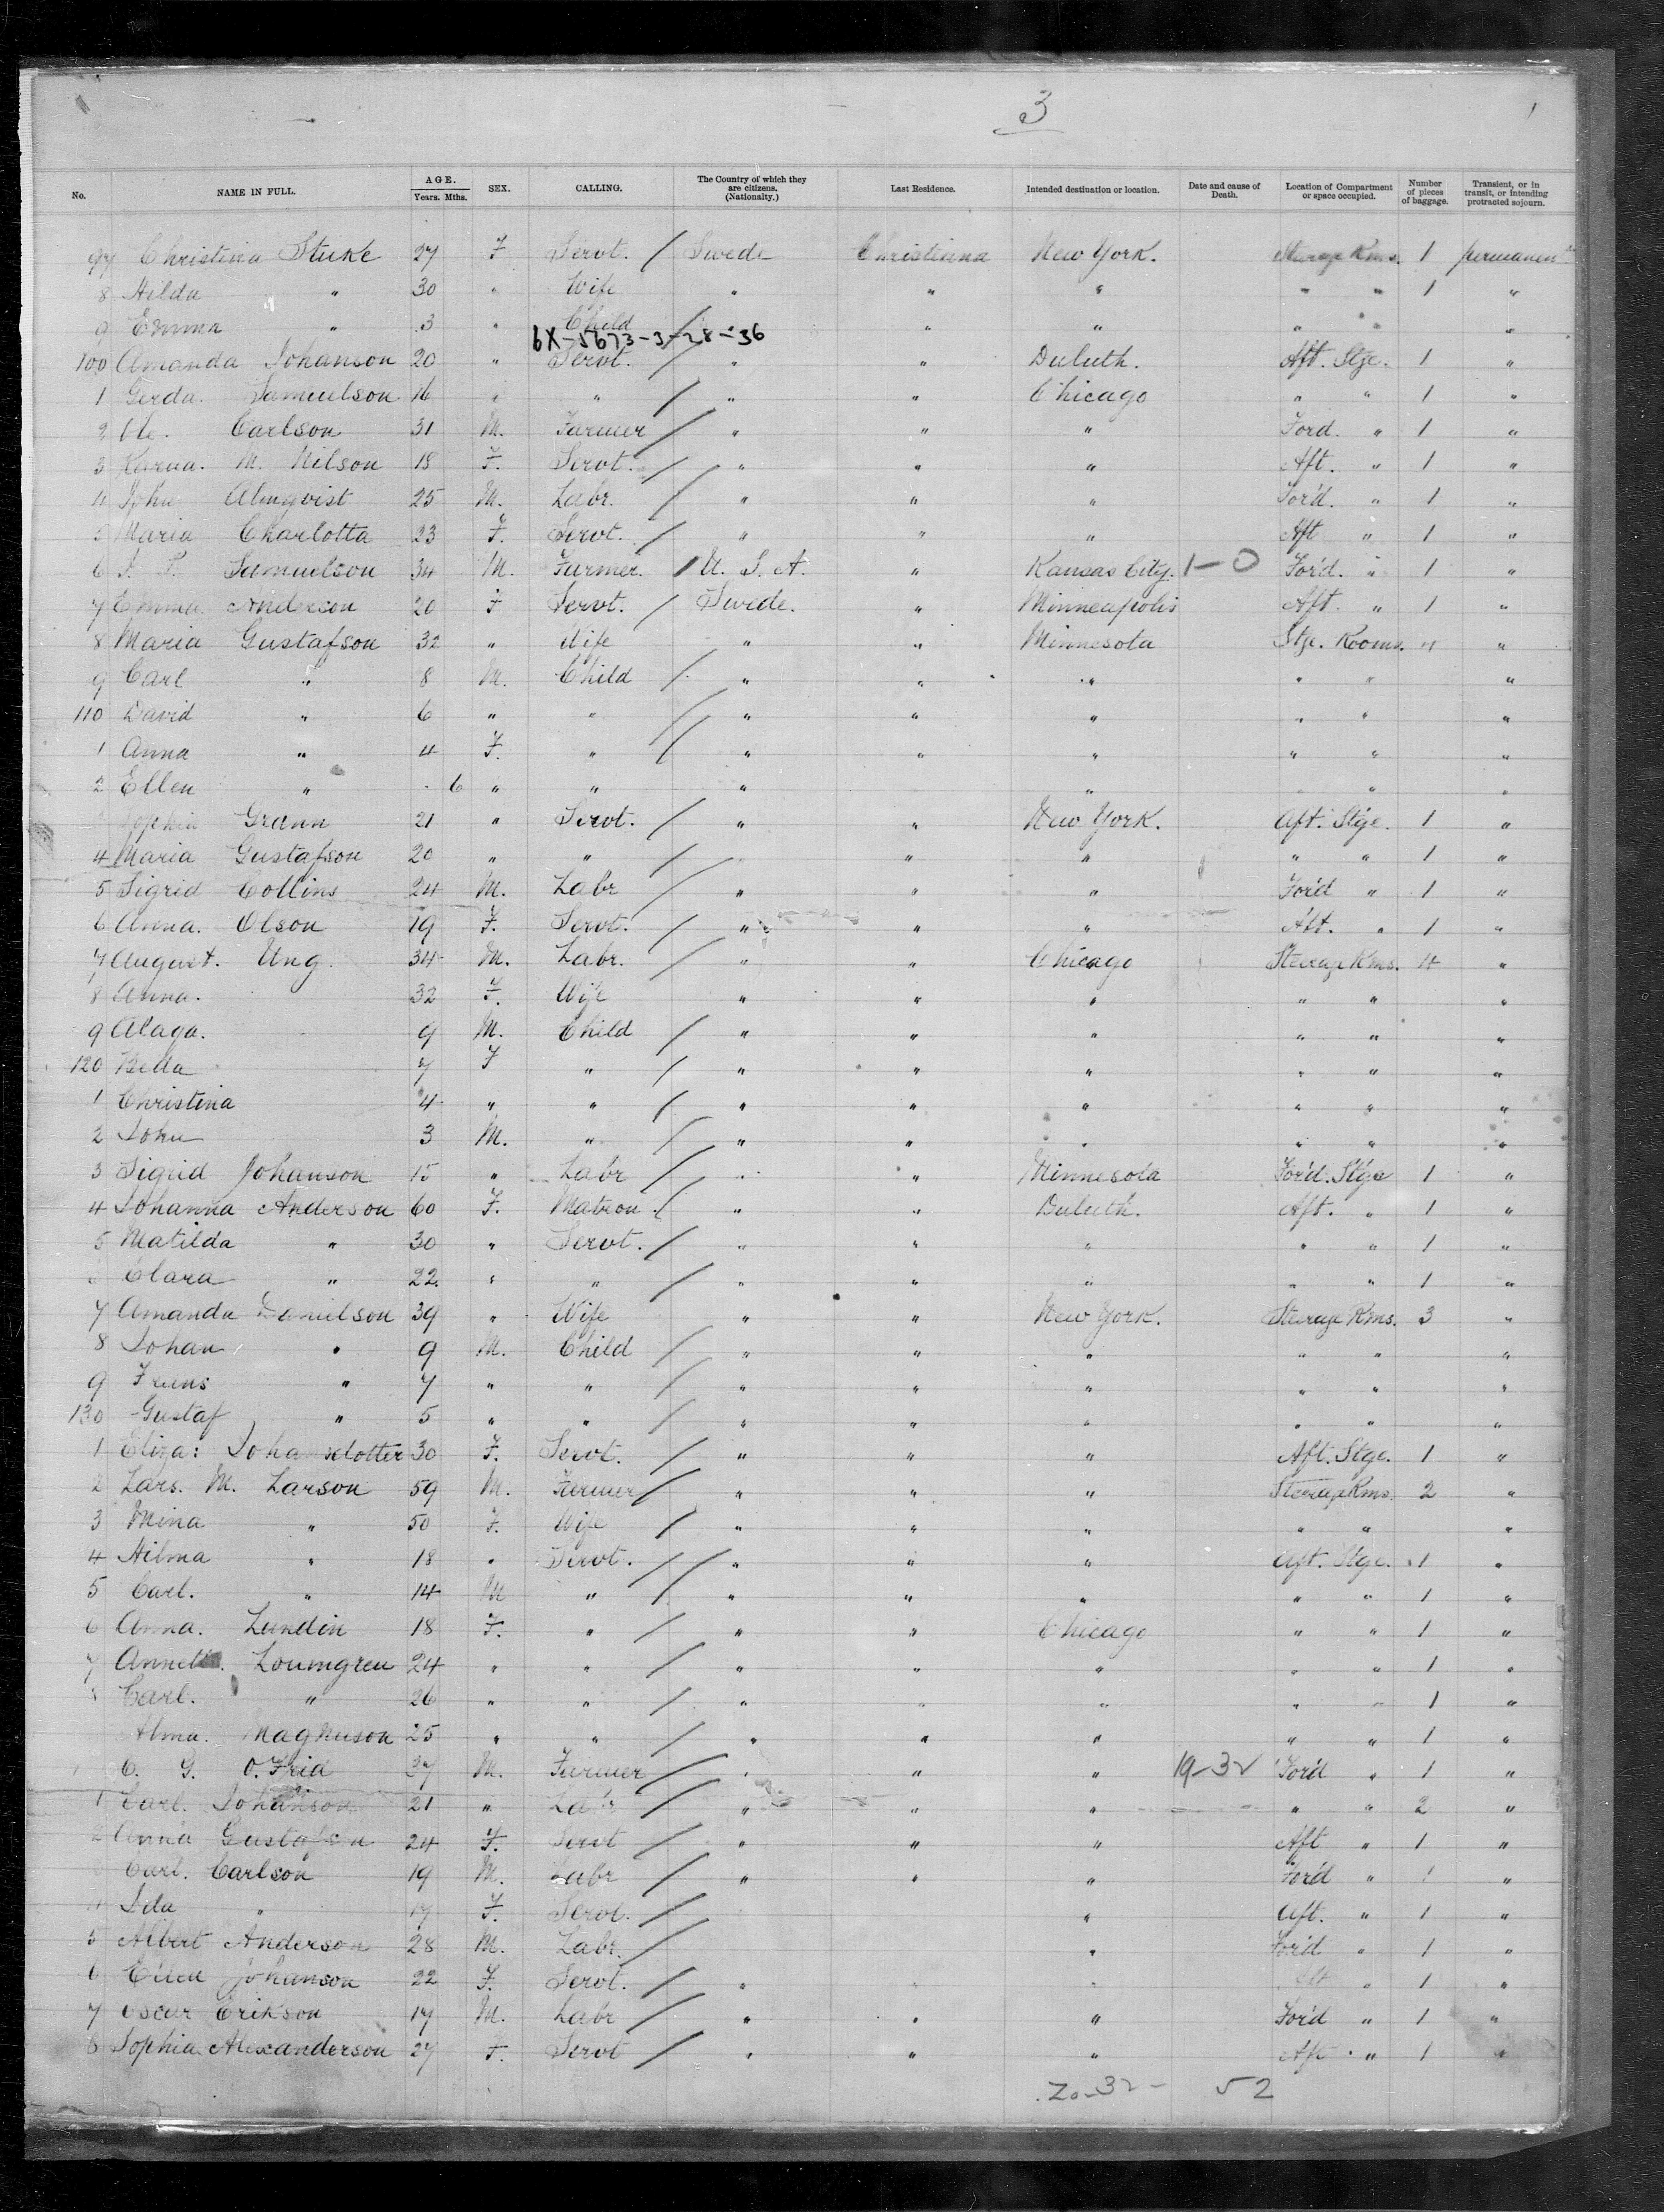 3
No. NAME IN FULL. AGE. Years. Mths. SEX. CALLING. The Country of which they are citizens. (Nationality.) Last Residence. Intended destination or location. Date and cause of Death. Location of Compartment or space occupied. Number of pieces of baggage. Transient, or in transit, or intending protracted sojourn.
97 Christina Stuke 27 F Servt. / Swede Christiana New York. Steerage Rms. 1 permanent
8 Hilda " 30 " Wife " " " " " 1 "
9 Emma " 3 " Child / " " " " " "
6X-5673-3-28-36
100 Amanda Johanson 20 " Servt. / " " Duluth. Aft. Stge. 1 "
1 Gerda. Samuelson 16 " " / " " Chicago " " 1 "
2 Ole. Carlson 31 M. Farmer / " " " Ford. " 1 "
3 Karna. M. Nilson 18 F. Servt. / " " " Aft. " 1 "
4 John Almqvist 25 M. Labr. / " " " For'd. " 1 "
5 Maria Charlotta 23 F. Servt. / " " " Aft " 1 "
6 Samuelson 34 M. Farmer. / U. S. A. " Kansas City. 1-0 For'd. " 1 "
7 Emma Anderson 20 F Servt. / Swede. " Minneapolis Aft. " 1 "
8 Maria Gustafson 32 " Wife " " Minnesota Stge. Rooms. 4 "
9 Carl " 8 M. Child / " " " " " "
110 David " 6 " " / " " " " " "
1 Anna " 4 F. " / " " " " " "
2 Ellen " 6 " " " " " " "
Sophia Grann 21 " Servt. / " " New York. Aft. Stge. 1 "
4 Maria Gustafson 20 " " / " " " " " 1 "
5 Sigrid Collins 24 M. Labr / " " " For'd " 1 "
6 Anna. Olson 19 F. Servt. / " " " Aft. " 1 "
7 August. Ung. 34 M. Labr. / " " Chicago Steerage Rms. 4 "
8 Anna. 32 F. Wife " " " " " "
9 Alaga. 9 M. Child / " " " " " "
120 Beda 7 F " / " " " " " "
1 Christina 4 " " / " " " " " "
2 John 3 M. " / " " " " " "
3 Sigrid Johanson 15 " Labr / " " Minnesota For'd. Stge 1 "
4 Johanna Anderson 60 F. Matron. / " " Duluth. Aft. " 1 "
5 Matilda " 30 " Servt. / " " " " " 1 "
Clara " 22 " " / " " " " " 1 "
7 Amanda Danielson 39 " Wife " " New York. Steerage Rms. 3 "
8 Johan " 9 M. Child / " " " " " "
9 Frans " 7 " " / " " " " " "
130 Gustaf " 5 " " / " " " " " "
1 Eliza: Johansdotter 30 F. Servt. / " " " Aft. Stge. 1 "
2 Lars. M. Larson 59 M. Farmer / " " " Steerage Rms. 2 "
3 Mina " 50 F. Wife / " " " " " "
4 Hilma " 18 " Servt. / " " " Aft. Stge. 1 "
5 Carl. " 14 M " / " " " " " 1 "
6 Anna. Lundin 18 F. " / " " Chicago " " 1 "
7 Loumgren 24 " " / " " " " " 1 "
Carl. " 26 " " / " " " " " 1 "
Alma. Magnuson 25 " " / " " " " " 1 "
C. G. O. Frid 37 M. Farmer / " " " 19-32 For'd " 1 "
1 Carl. Johanson 21 " Labr / " " " " " 2 "
2 Anna Gustafson 24 F. Servt / " " " Aft " 1 "
Carl. Carlson 19 M. Labr / " " " For'd " 1 "
4 Ida " 17 F. Servt. / " Aft. " 1 "
5 Albert Anderson 28 M. Labr. / " For'd " 1 "
6 Ellen Johanson 22 F. Servt. / " " Aft " 1 "
7 Oscar Erikson 17 M. Labr / " " " For'd " 1 "
8 Sophia Alexanderson 27 F. Servt / " " " Aft " 1 "
20-32- 52